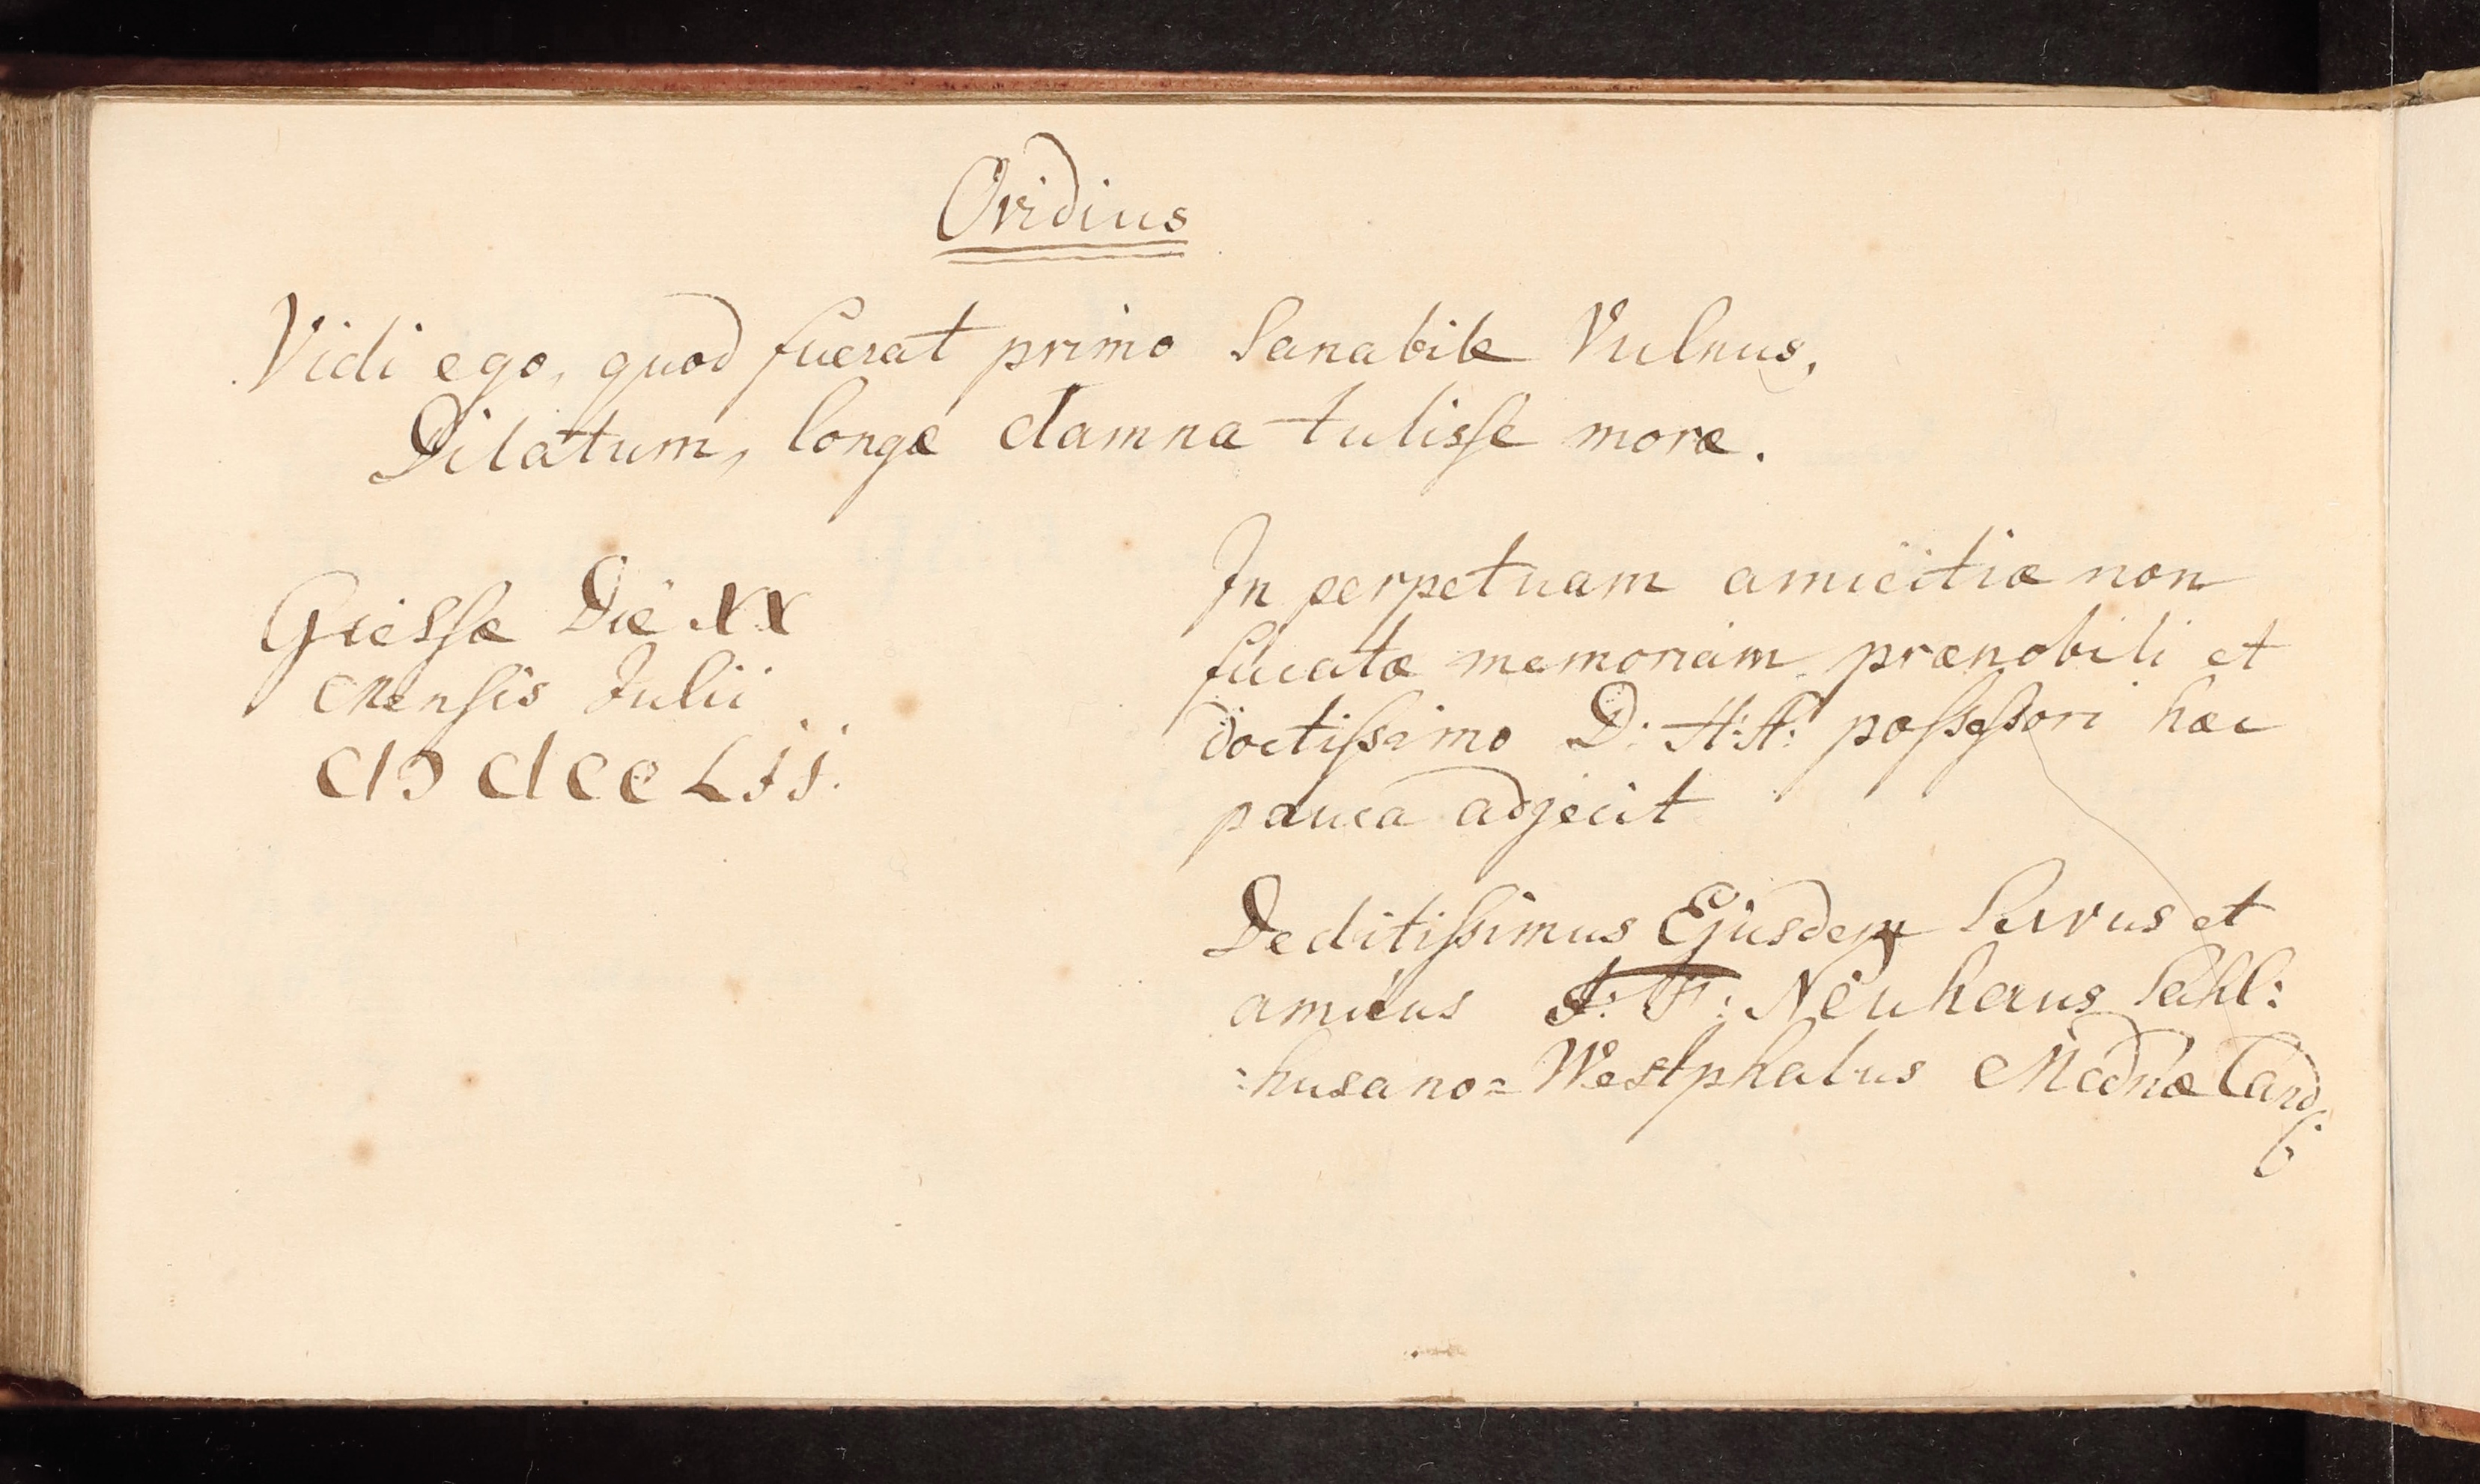 Ovidius
Vidi ego, quod fuerat primo Sanabile Vulnus,
Dilatum, longæ damna tulisse moræ.
Giessæ Die XX
Mensis Julii
CIↃ DCC LII.
In perpetuam amicitiæ non
fucatæ memoriam prænobili et
doctissimo D: H: H: possessori hæc
pauca adjecit
Deditissimus Ejusdem Servus et
amicus J: F: Neuhaus
:husano= Westphalus Mednæ Cand